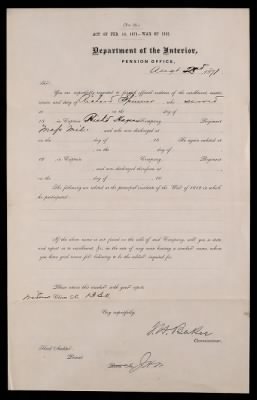 (No. 26.)
ACT OF FEB. 14, 1871—WAR OF 1812.
Department of the Interior,
PENSION OFFICE,
Augt 28th, 1871
Sir:
You are respectfully requested to furnish official evidence of the enrollment, muster,
service and duty of Richard who served
as on the day of
18 in Captain Company, Regiment
Mass Mil. and who was discharged at
on the day of 18 . He again enlisted at
, on the day of
18 in Captain Company, Regiment
, and was discharged therefrom at
on the day of
The following are noted as the principal incidents of the War of 1812 in which
he participated:
If the above name is not found on the rolls of said Company, will you so state
and report as to enrollment, &c., in the case of any man bearing a similar name, whom
you have good reason for believing to be the soldier inquired for.
Please return this circular with your report.
Very respectfully,
J. H. Baker
Commissioner.
Third Auditor,
Present.